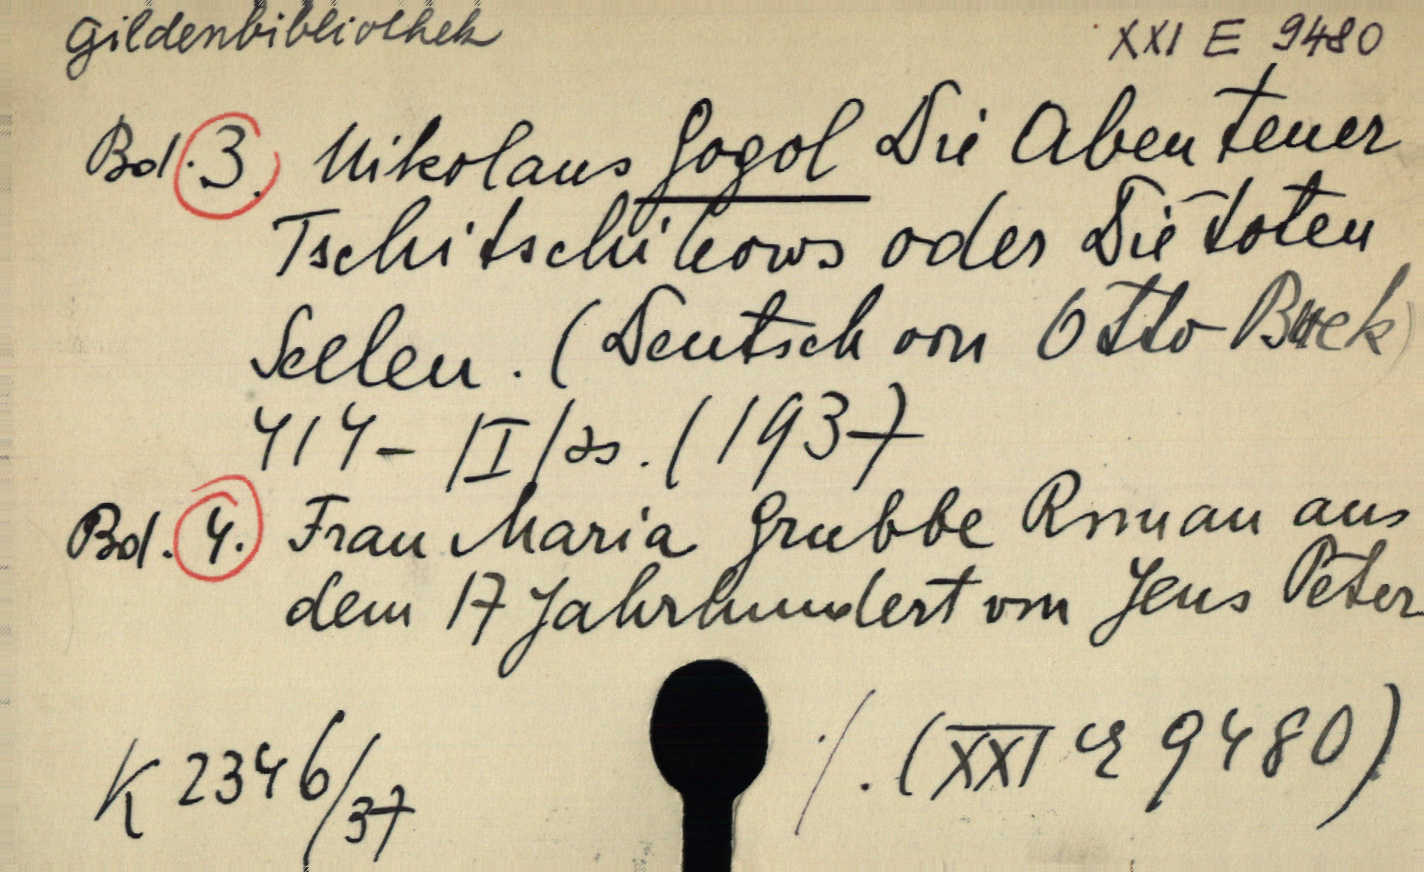 Gildenbibliothek
XXI E 9480
Bd. 3. Nikolaus Gogol Die Abenteuer
Tschitschikows oder Die toten
Seelen. (Deutsch von Otto Buek)
414 - |I| 8s. (1937)
Bd. 4. Frau Maria Grubbe Roman aus
dem 17 Jahrhundert von Jens Peter
K 2346/37
./. (XXI E 9480)